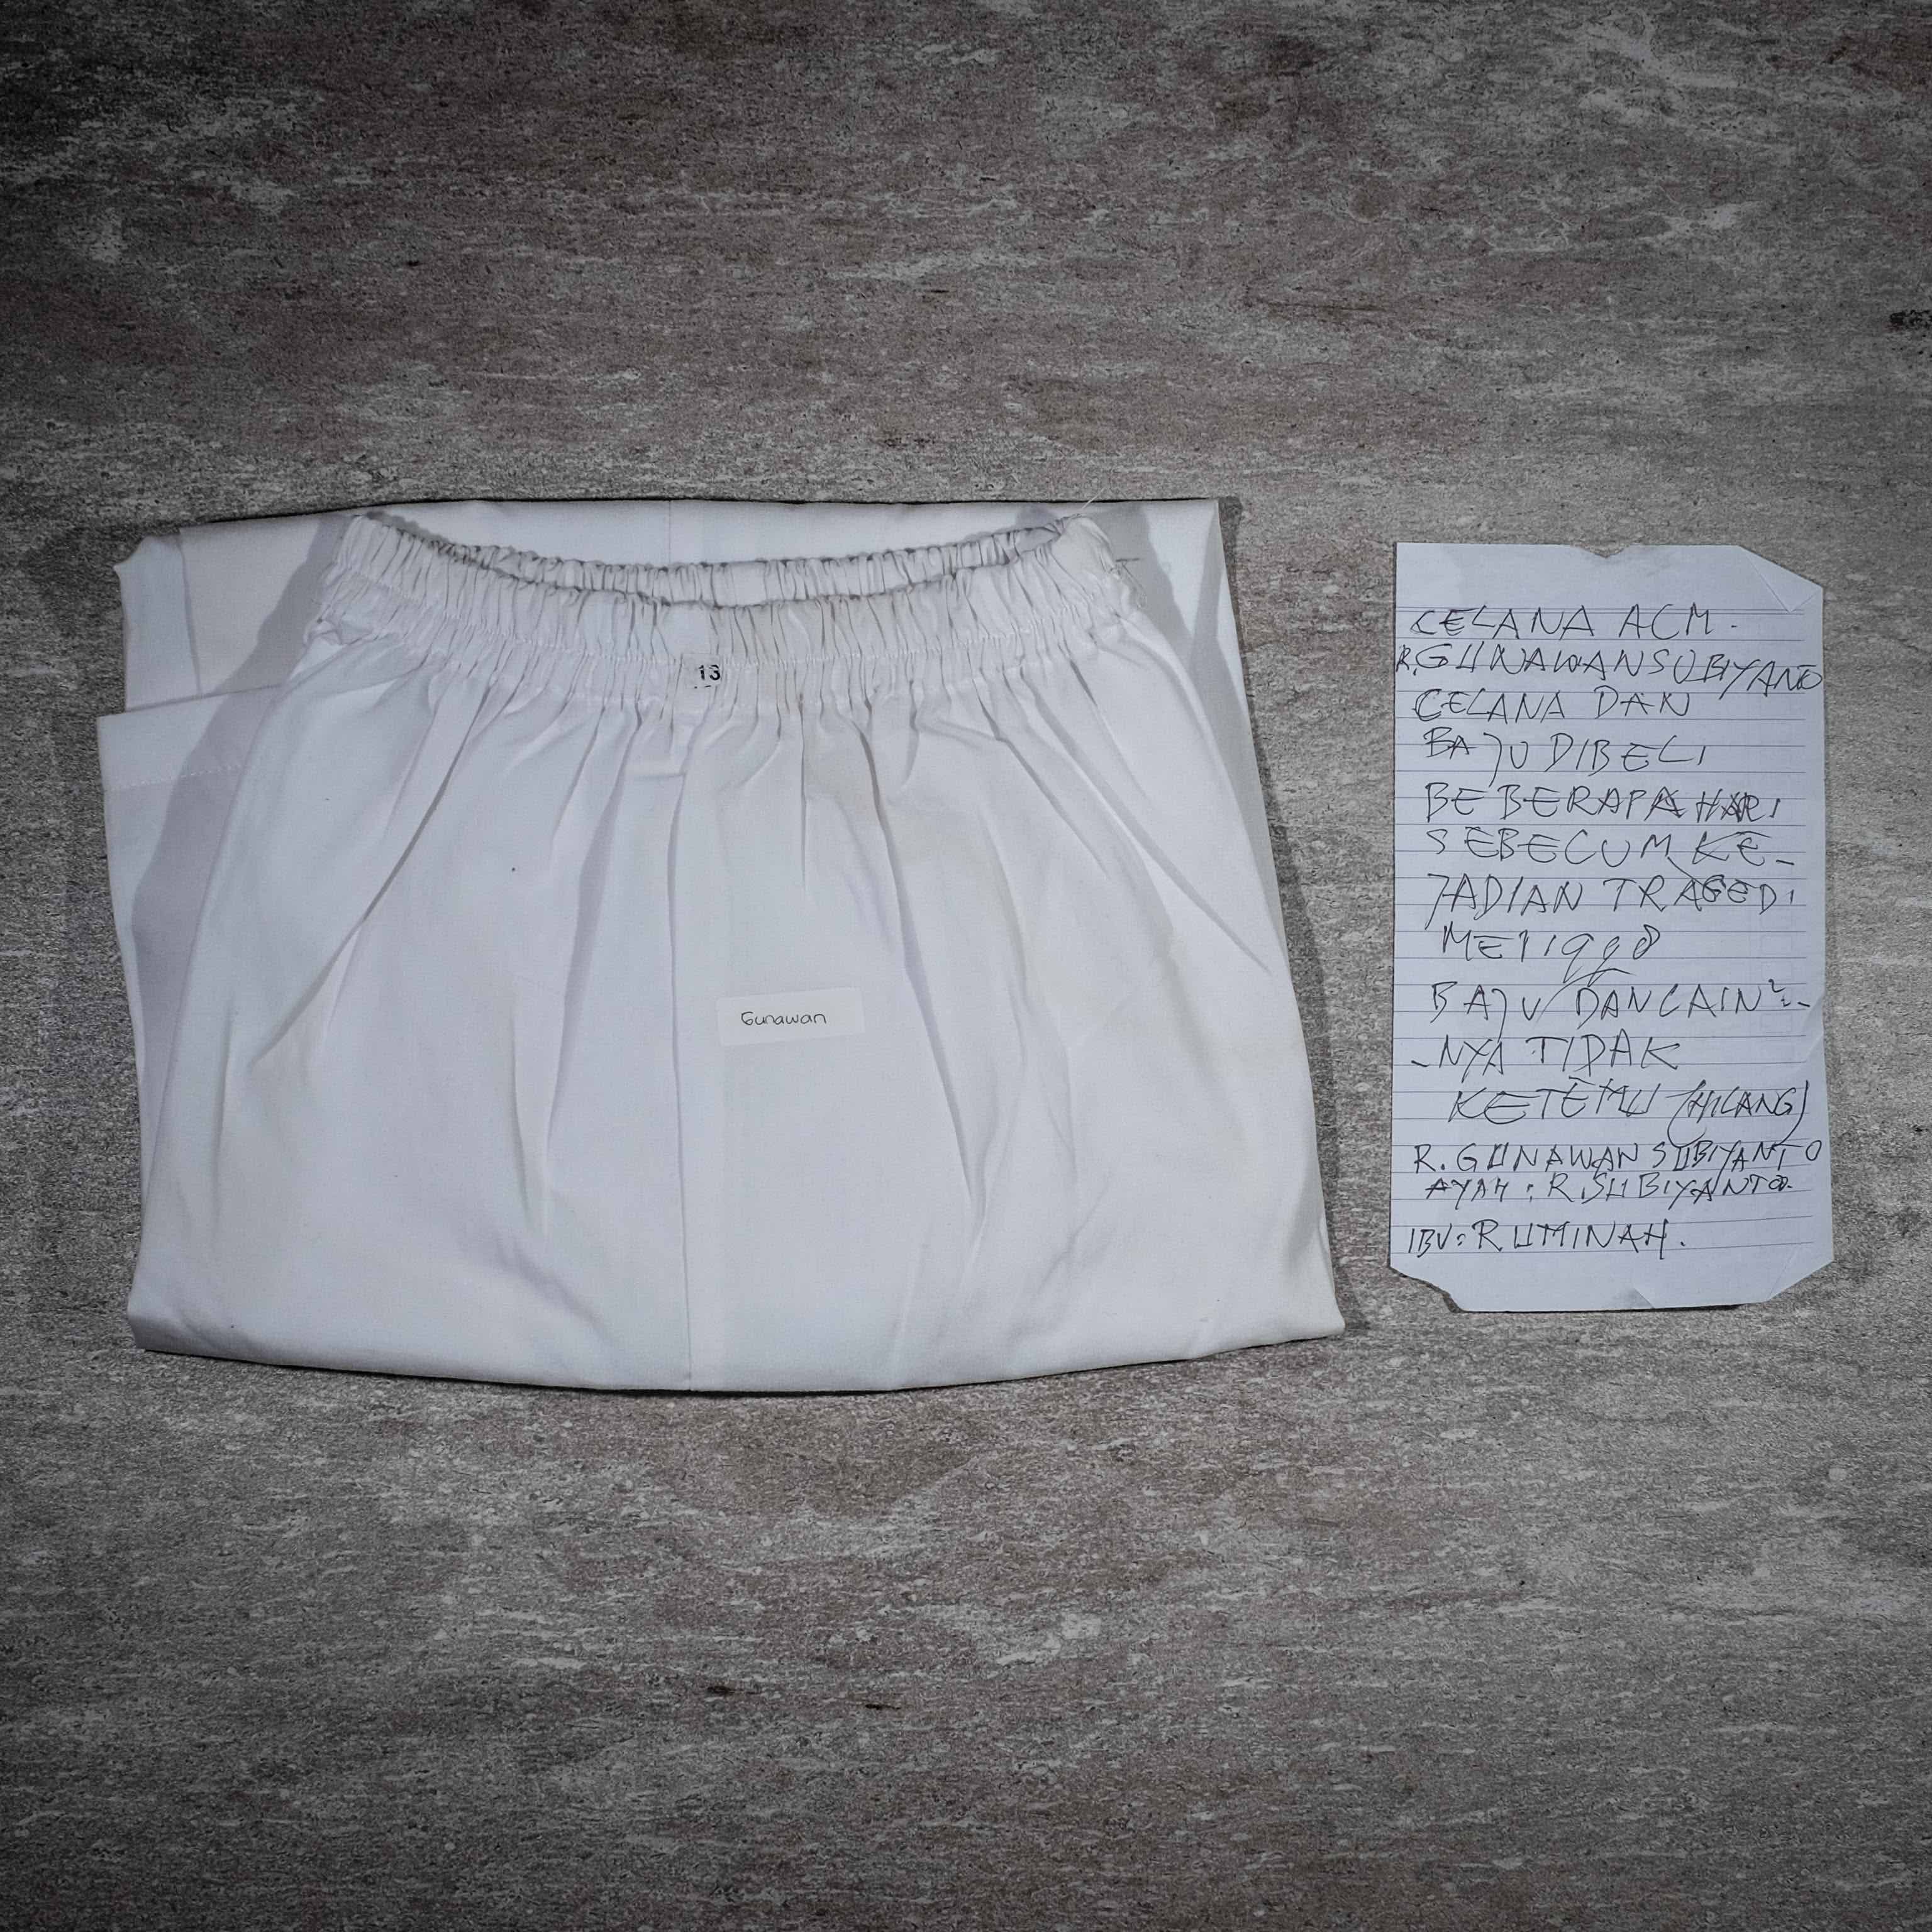 13
Gunawan
CELANA ALM.
R.GUNAWAN SUBIYANTO
CELANA DAN
BAJU DIBELI
BEBERAPA HARI
SEBELUM KE-
JADIAN TRAGEDI
MEI 1998
BAJU DAN LAIN²-
-NYA TIDAK
KETEMU (HILANG)
R. GUNAWAN SUBIYANTO
AYAH : R. SUBIYANTO.
IBU : RUMINAH.